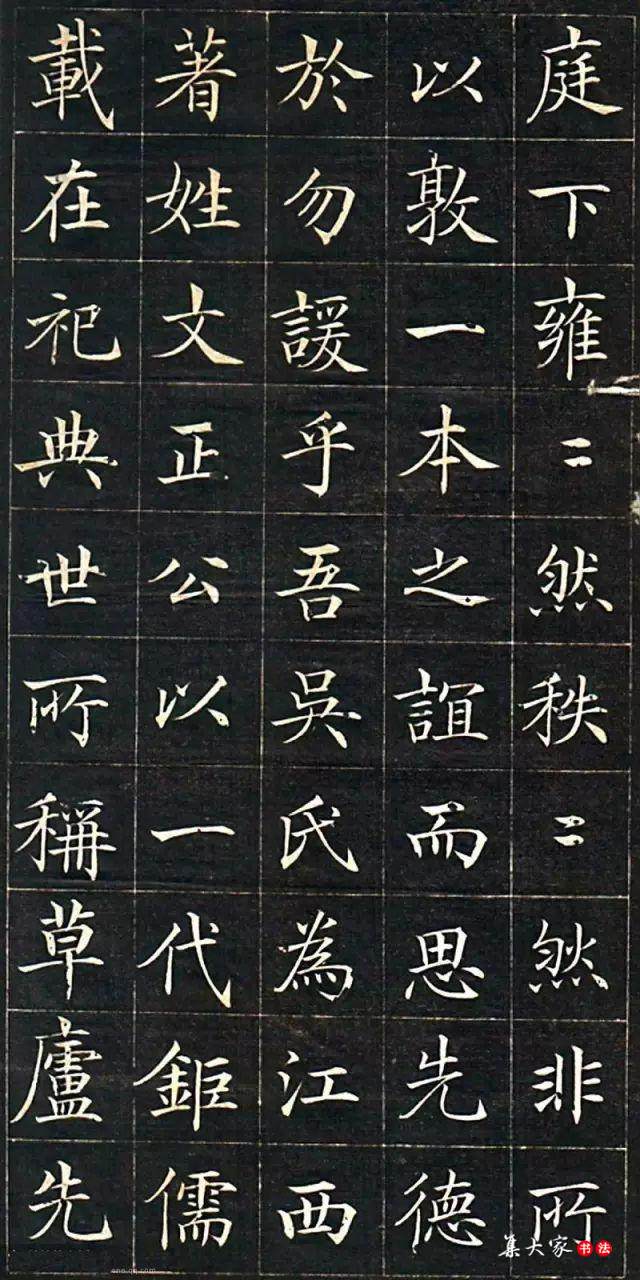 庭下雍〻然秩〻然非所
以敦一本之誼而思先德
於勿諼乎吾吳氏為江西
著姓文正公以一代鉅儒
載在祀典世所稱草廬先
集大家书法